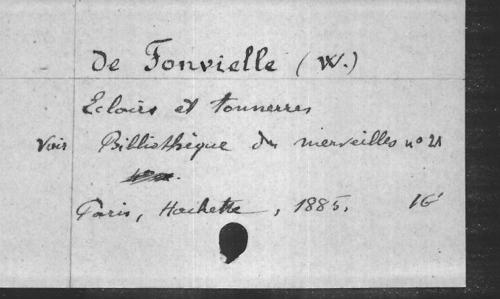 de Fonvielle (W.)
Eclairs et tonnerres
Voir Bibliothèque des merveilles n° 21
Paris, Hachette, 1885. 16°